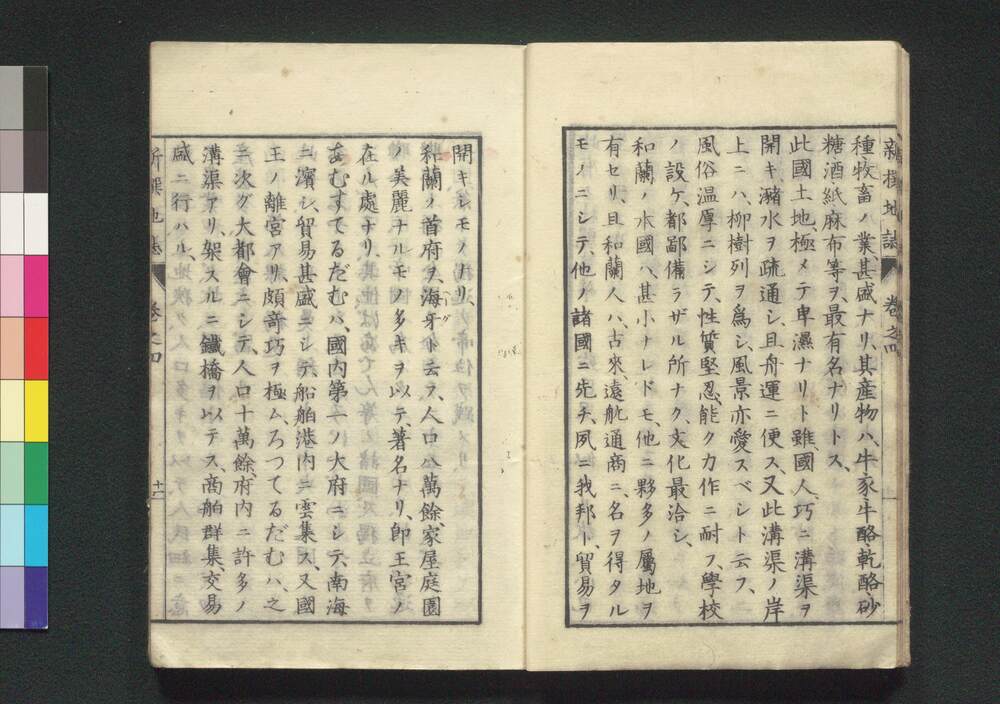 新撰地誌 卷之四
種牧畜ノ業、甚盛ナリ、其產物ハ、牛、豕、牛酪、乾酪、砂
糖、酒、紙、麻布等ヲ、最有名ナリトス、
此國土地、極メテ卑濕ナリト雖、國人、巧ニ溝渠ヲ
開キ、瀦水ヲ疏通シ、且舟運ニ便ス、又此溝渠ノ岸
上ニハ、柳樹列ヲ爲シ、風景亦愛スベシト云フ、
風俗溫厚ニシテ、性質堅忍、能ク力作ニ耐フ、學校
ノ設ケ、都鄙備ラザル所ナク、文化最洽シ、
和蘭ノ本國ハ、甚小ナレドモ、他ニ夥多ノ屬地ヲ
有セリ、且和蘭人ハ、古來遠航通商ニ、名ヲ得タル
モノニシテ、他ノ諸國ニ先チ、夙ニ我邦ト貿易ヲ
開キシモノナリ、
和蘭ノ首府ヲ、海牙ト云フ、人口八萬餘、家屋庭園
ノ美麗ナルモノ多キヲ以テ、著名ナリ、卽王宮ノ
在ル處ナリ、
あむすてるだむハ、國內第一ノ大府ニシテ、南海
ニ濱シ、貿易甚盛ニシテ、船舶港內ニ雲集ス、又國
王ノ離宮アリ、頗奇巧ヲ極ム、ろつてるだむハ、之
ニ次グ大都會ニシテ、人口十萬餘、府內ニ許多ノ
溝渠アリ、架スルニ鐵橋ヲ以テス、商舶群集、交易
盛ニ行ハル、
新撰地誌 卷之四 十一